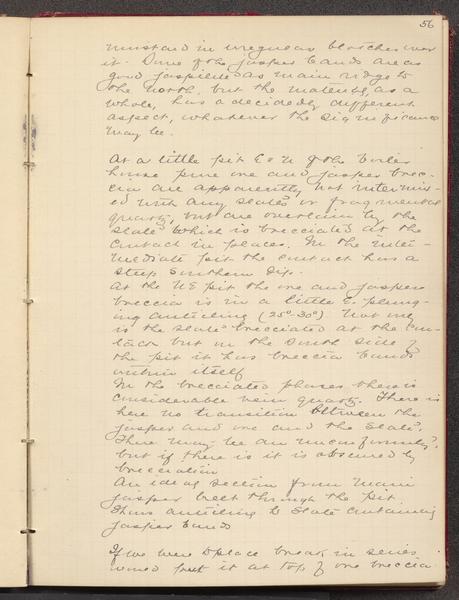 56
mustard in irregular blotches over
it. Some of the jasper bands are as
good jaspilite as main ridge to
the north, but the material, as a
whole, has a decidedly different
aspect, whatever the significance
may be.
At a little pit E & N of the boiler
house pure ore and jasper brec-
cia are apparently not intermix-
ed with any slate or fragmental
quartz, but are overlain by the
slate which is brecciated at the
contact in places. In the inter-
mediate pit the contact has a
steep Southern dip.
At the NE pit the ore and jasper
breccia is in a little E. plung-
ing anticline (25°-30°) Not only
is the slate brecciated at the con-
tact but on the South side of
the pit it has breccia bands
within itself
In the brecciated phases there is
considerable vein quartz. There is
here no transition between the
jasper and ore and the slate.
There may be an unconformity,
but if there is it is obscured by
brecciation
An ideal section from main
jasper belt through the pit.
Thus anticline to slate containing
jasper bands
If we were to place break in series
would put it at top of ore breccia